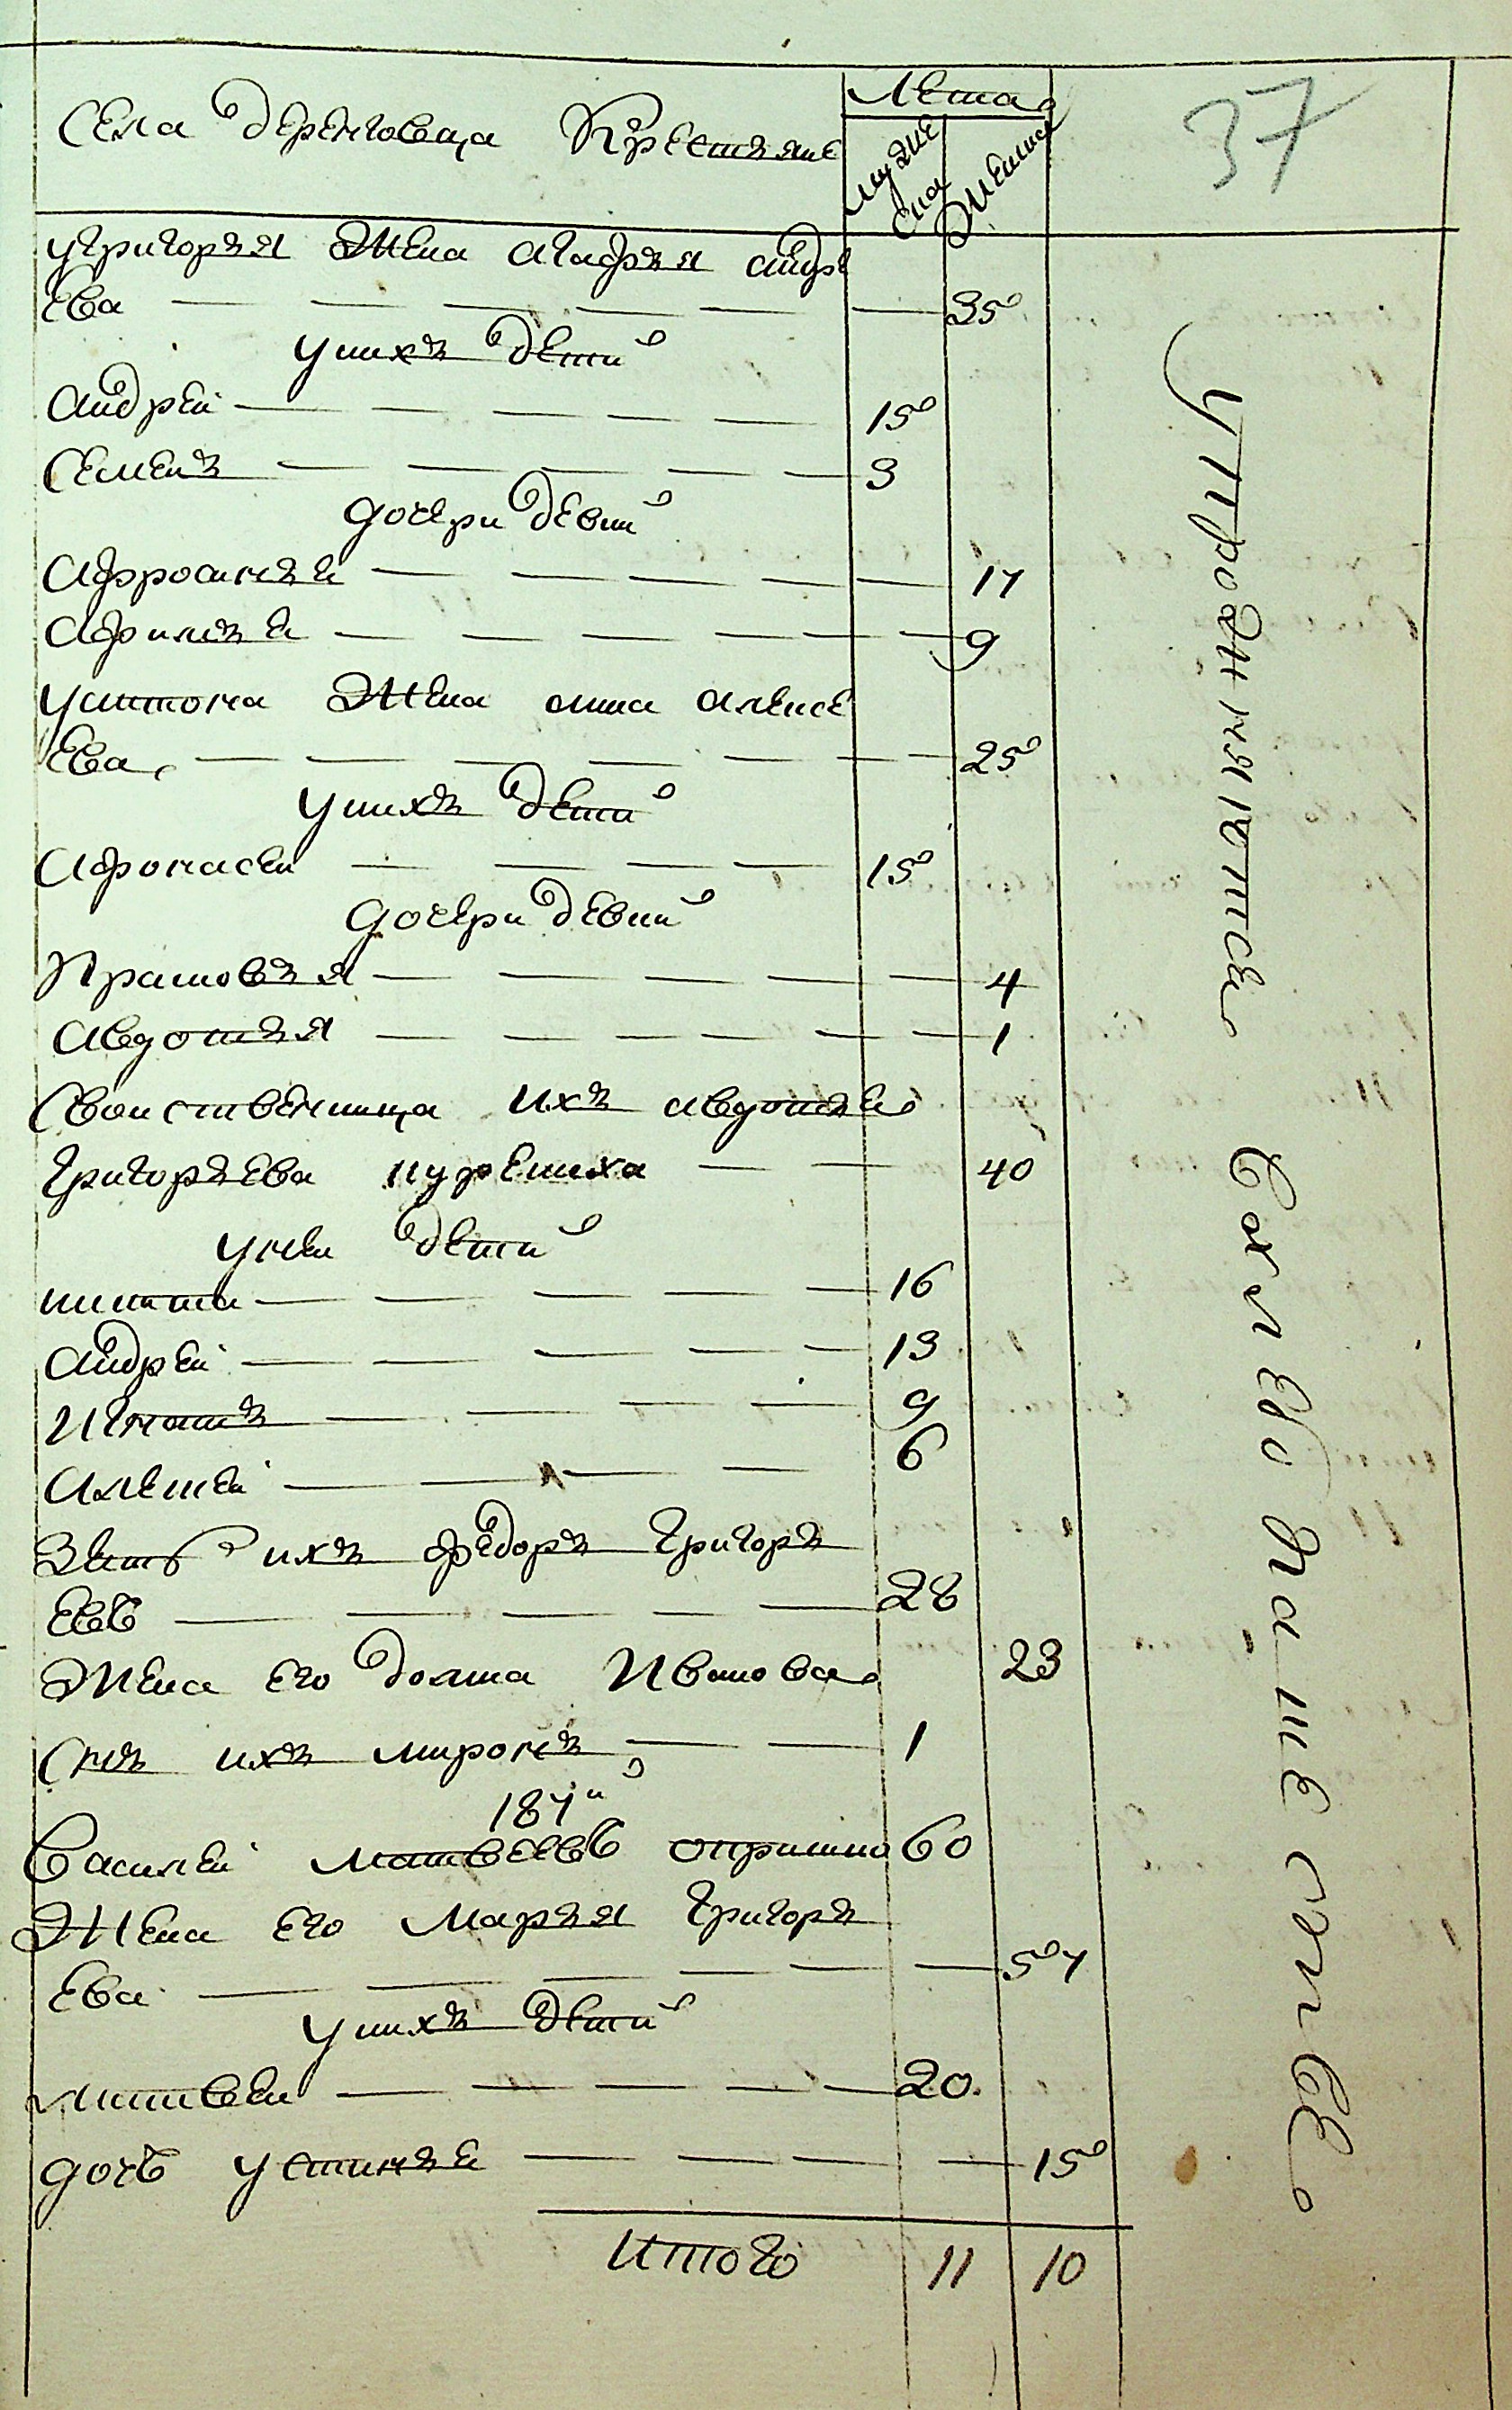 Села деренговца Крестяне
Лета
мужеска
Женска
37
у григорья Жена агафья андре
ева 35
у нихъ детй
андрей 15
Семенъ 3
дочери девки
афросинья 17
афимья 9
у антона Жена анна алексе
ева 25
у нихъ детй
афонасей 15
дочери девки
Прасковья 4
авдотья 1
Свойственница ихъ авдотья
Григорьева 40
у ней детй
никита 16
андрей 13
Игнатъ 9
алексей 6
Зять ихъ федоръ Григорь
евъ 28
Жена его домна Иванова 23
Снъ ихъ миронъ 1
187
Василей Матвеевъ 60
Жена его Марья Григорь
ева 57
у нихъ детй
матвей 20
дочь устинья 15
Итого 11 10
упражняются
в хлебопашестве